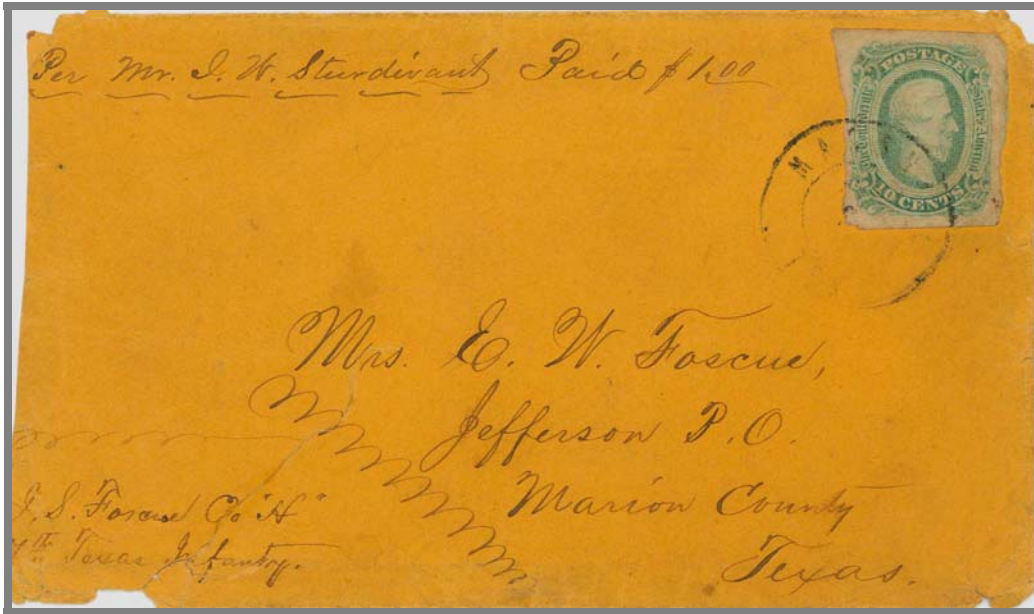 Per Mr. J. W. Sturdivant Paid $1.00
POSTAGE
The Confederate States America
10 CENTS
Mrs. E. W. Foscue,
Jefferson P.O.
Marion County
Texas.
J. S. Foscue Co "H"
7th Texas Infantry.